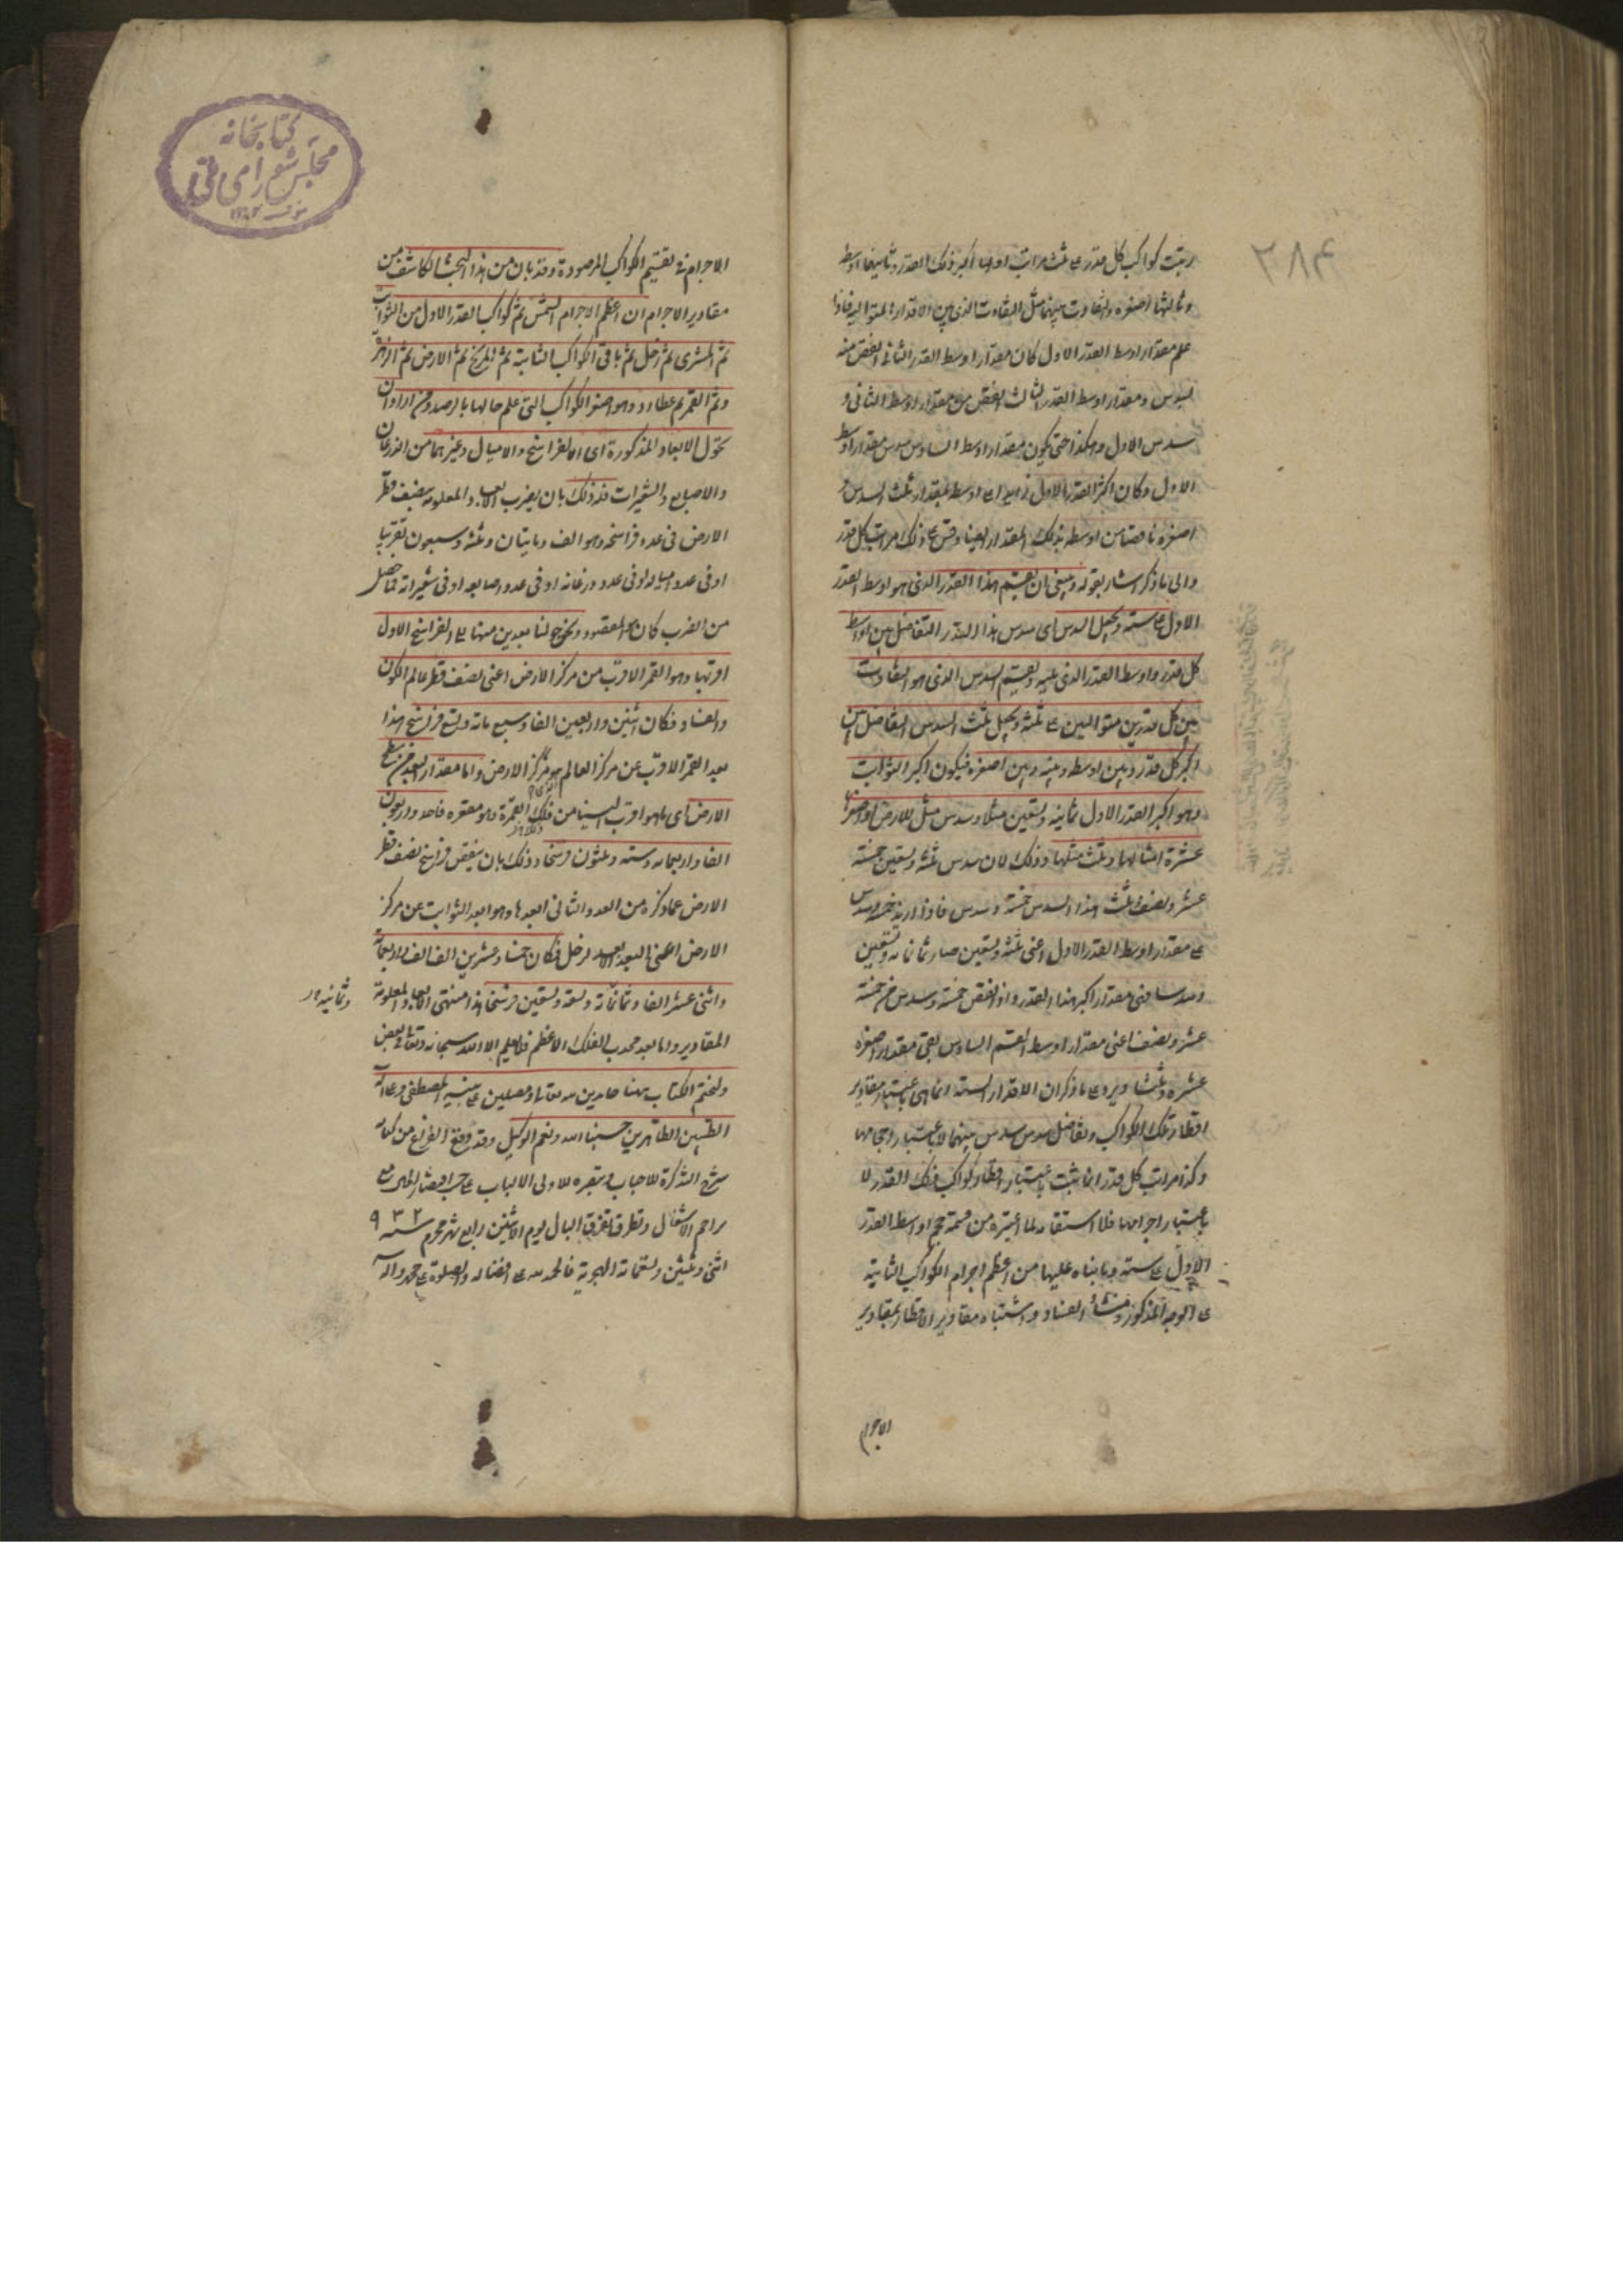 ۲۸۴
رتبت كواكب كل قدر على ثلث مراتب اولها اكبر ذلك القدر وثانيها اوسطه
وثالثها اصغره والتفاوت بينهما مثل التفاوت الذى بين الاقدار المتوالية فاذا
علم مقدار اوسط القدر الاول كان مقدار اوسط القدر الثانى انقص منه
بسدس ومقدار اوسط القدر الثالث انقص من مقدار اوسط الثانى و
سدس الاول وهكذا حتى يكون مقدار اوسط السادس سدس مقدار اوسط
الاول وكان اكبر القدر الاول زايدا على اوسطه بمقدار ثلث السدس و
اصغره ناقصا من اوسطه بذلك المقدار بعينه وقس على ذلك مراتب كل قدر
والى ما ذكر اشار بقوله وينبغى ان يقسم هذا القدر الذى هو اوسط القدر
الاول على ستة ويجعل السدس اى سدس هذا القدر التفاضل بين اوسط
كل قدر واوسط القدر الذى يليه ويقسم السدس الذى هو التفاوت
بين كل قدرين متواليين على ثلثة ويجعل ثلث السدس التفاضل بين
اكبر كل قدر وبين اوسطه وبينه وبين اصغره فيكون اكبر الثوابت
وهو اكبر القدر الاول ثمانية وتسعين مثلا وسدس مثل للارض واصغرها
عشرة امثالها وثلث مثلها وذلك لان سدس ثلثة وتسعين خمسة
عشر ونصف وثلث هذا السدس خمسة وسدس فاذا زيد خمسة وسدس
على مقدار اوسط القدر الاول اعنى ثلثة وتسعين صار ثمانية وتسعين
وسدسا فهى مقدار اكبر هذا القدر واذا نقص خمسة وسدس من خمسة
عشر ونصف اعنى مقدار اوسط القسم السادس بقى مقدار اصغره
عشرة وثلثا ويرد على ما ذكر ان الاقدار الستة انما هى باعتبار مقادير
اقطار تلك الكواكب وتفاضل سدس سدس بينهما لا باعتبار احجامها
وكذا مراتب كل قدر انما ثبت باعتبار اقطار كواكب ذلك القدر لا
باعتبار اجرامها فلا استقامة لما اعتبره من قسمة حجم اوسط القدر
الاول على ستة وما بناه عليها من اعظم اجرام الكواكب الثابتة
على الوجه المذكور ومنشأ الفساد واشتباه مقادير الاقطار بمقادير
الاجرام
كتابخانه
مجلس شوراى ملى
الاجرام فى تقسيم الكواكب المرصودة وقد بان من هذا البحث الكاشف عن
مقادير الاجرام ان اعظم الاجرام الشمس ثم كواكب القدر الاول من الثوابت
ثم المشترى ثم زحل ثم باقى الكواكب الثابتة ثم المريخ ثم الارض ثم الزهرة
وثم القمر ثم عطارد وهو اصغر الكواكب التى علم حالها بالرصد ومن اراد ان
يحول الابعاد المذكورة اى الفراسخ والاميال وغيرهما من الذرعان
والاصابع والشعيرات فله ذلك بان يضرب الابعاد المعلومة بنصف قطر
الارض فى عدد فراسخه وهو الف ومايتان وثلثة وسبعون تقريبا
او فى عدد امياله او فى عدد ذرعانه او فى عدد اصابعه او فى شعيراته فما حصل
من الضرب كان هو المقصود ونخرج لنا بعدين منهما على الفراسخ الاول
اقربها وهو القمر الاقرب من مركز الارض اعنى نصف قطر عالم الكون
والفساد فكان اثنين واربعين الفا وسبع مائة وتسع فراسخ هذا
بعد القمر الاقرب عن مركز العالم هو مركز الارض واما مقدار البعد عن سطح
الارض اى ما هو اقرب الينا من فلك القمر وهو مقعره فاحد واربعون
الفا واربعمائة وستة وثلثون فرسخا وذلك بان ينقص فراسخ نصف قطر
الارض عما ذكره من العدد والثانى ابعدها وهو ابعد الثوابت عن مركز
الارض اعنى البعد الابعد لزحل فكان خمسا وعشرين الف الف واربعمائة
واثنى عشر الفا وثمانمائة وتسعة وتسعين فرسخا هذا منتهى الابعاد المعلومة
وثمانية
المقادير واما بعد محدب الفلك الاعظم فلا يعلم الا الله سبحانه وتعالى
ولنختم الكتاب ههنا حامدين لله تعالى ومصلين على نبيه المصطفى وعلى آله
الطيبين الطاهرين حسبنا الله ونعم الوكيل وقد وقع الفراغ من كتابة
شرح التذكرة للاحباب وتبصره لاولى الالباب
الاشغال وتطرق تفرق البال يوم الاثنين رابع شهر محرم سنه ۹۳۲
اثنى وثلثين وتسعمائة الهجرية فالحمد لله على افضاله والصلوة على محمد وآله